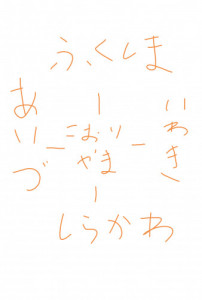 ふくしま
あいづ
こおり
やま
いわき
しらかわ